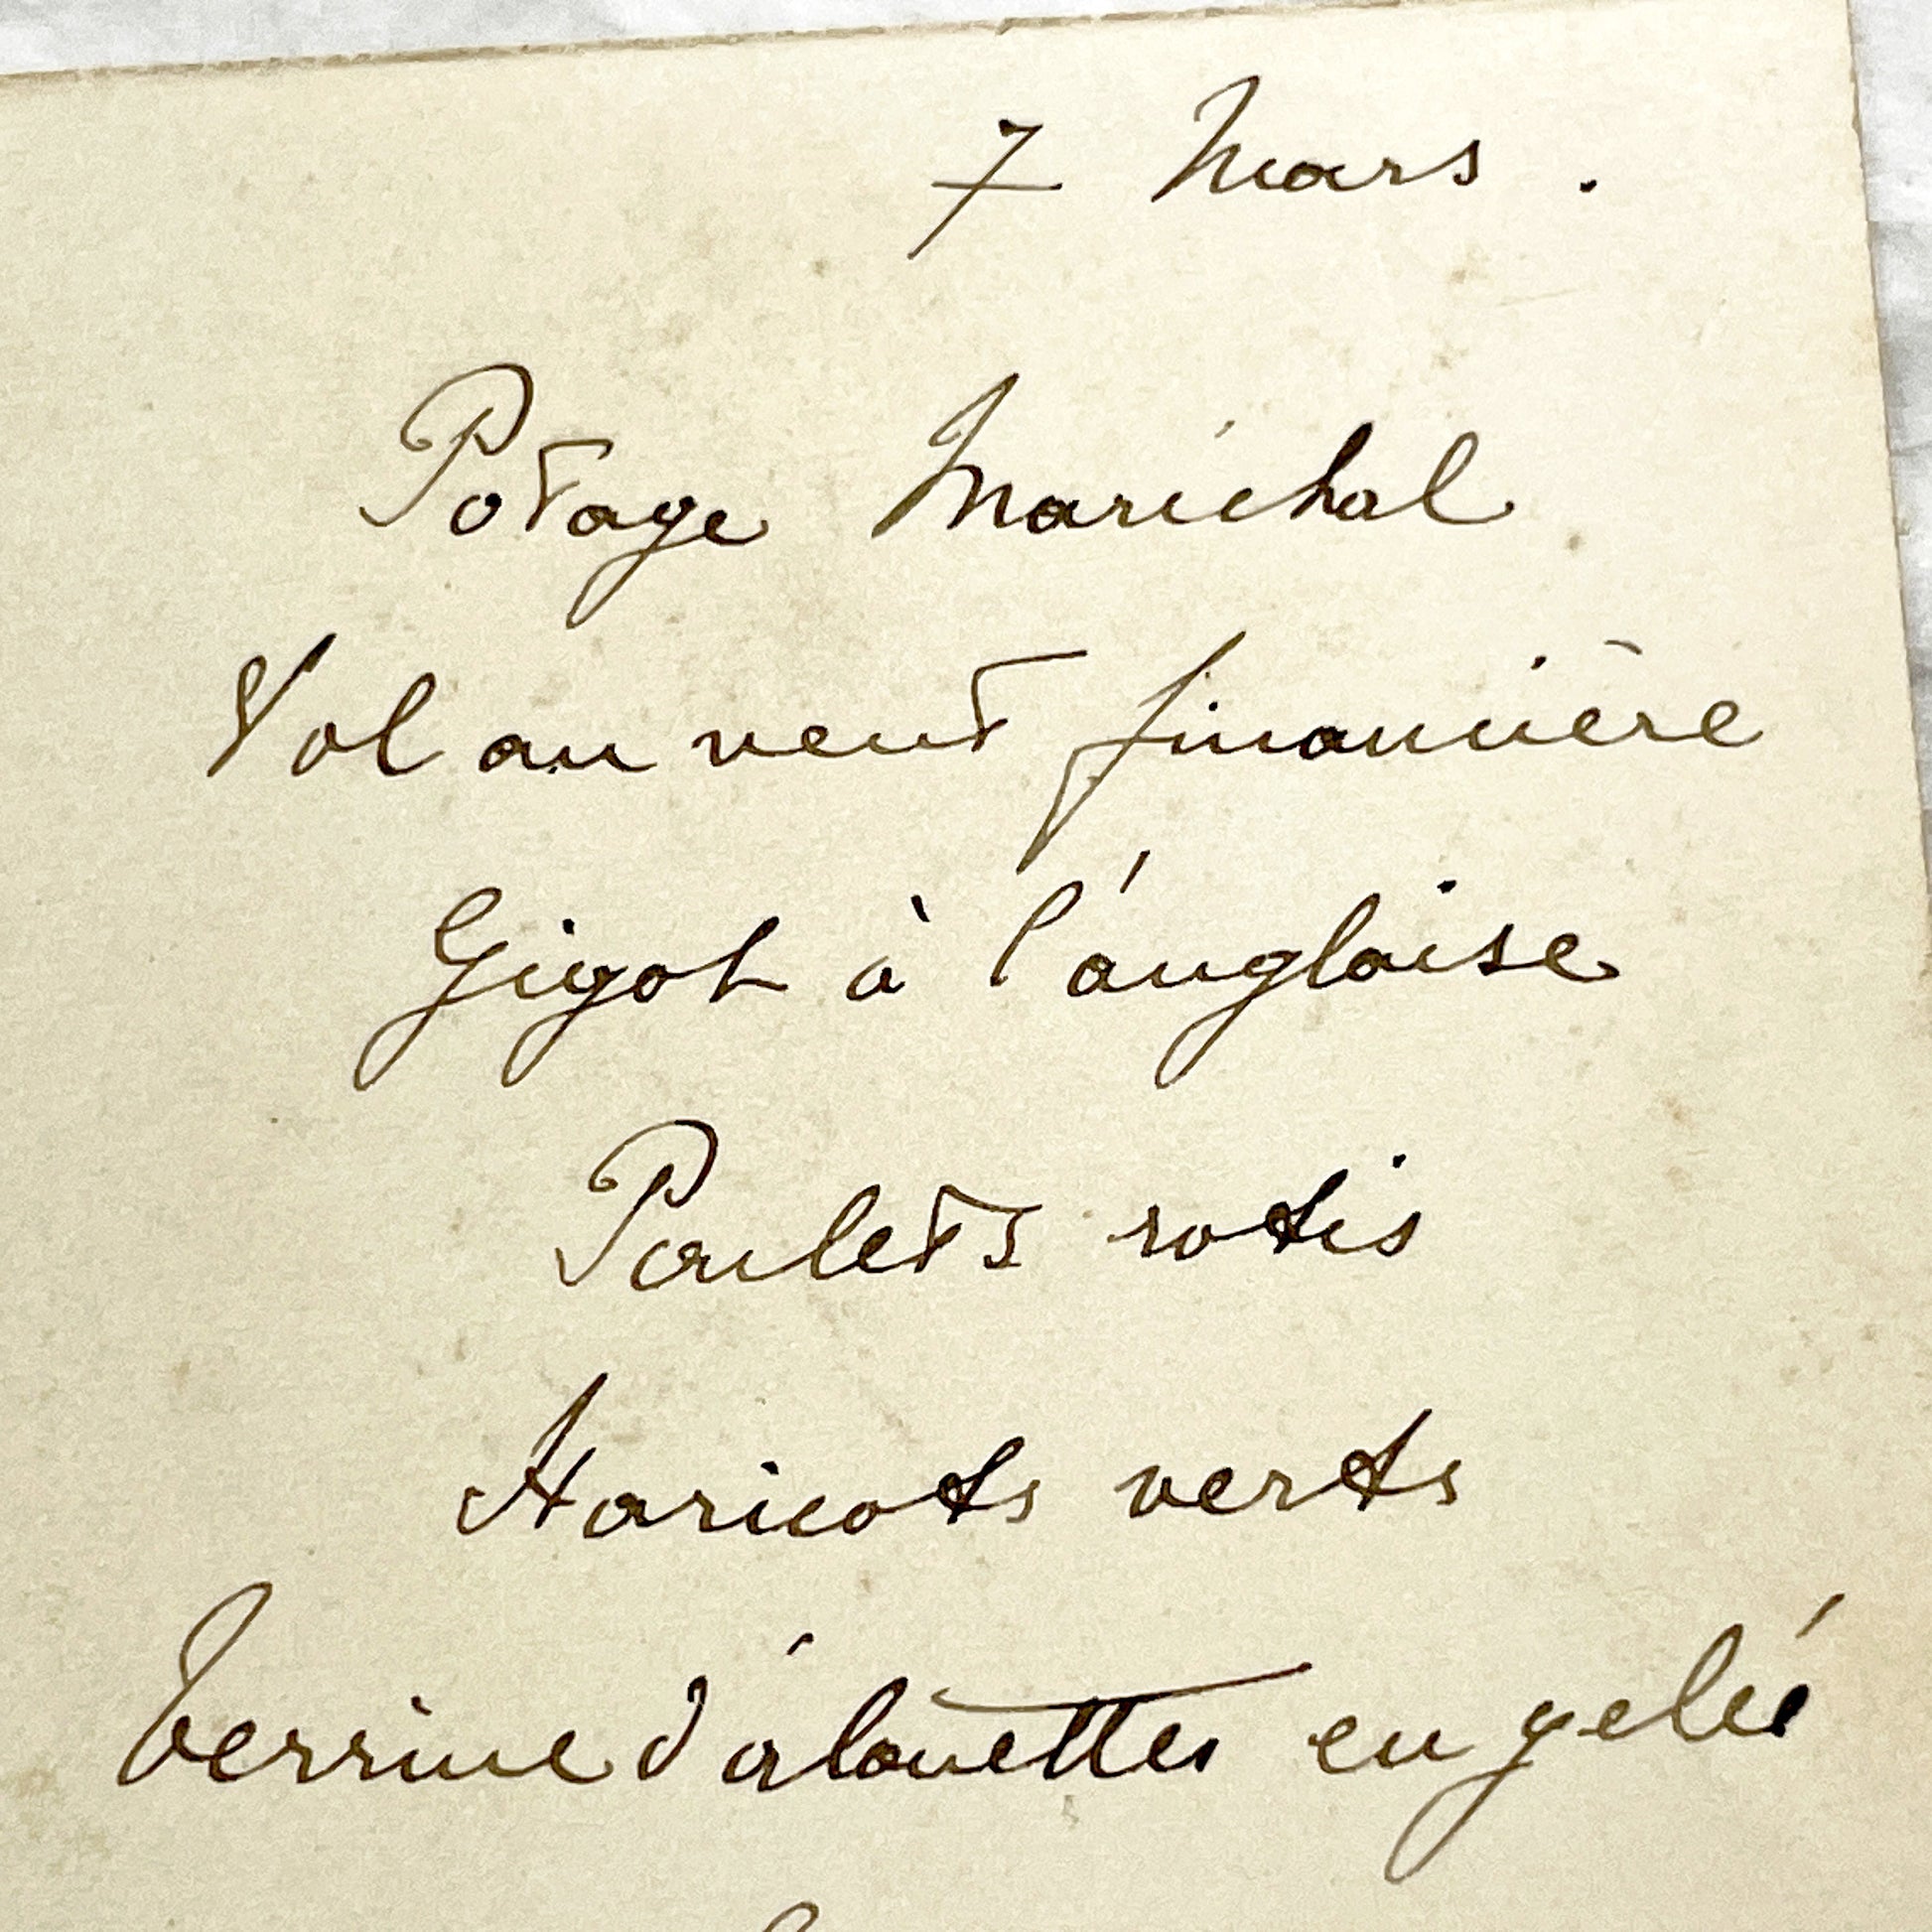 7 Mars.
Potage Maréchal
Vol au vent financière
Gigot à l'anglaise
Poulets rotis
Haricots verts
Terrine d'alouettes en gelée